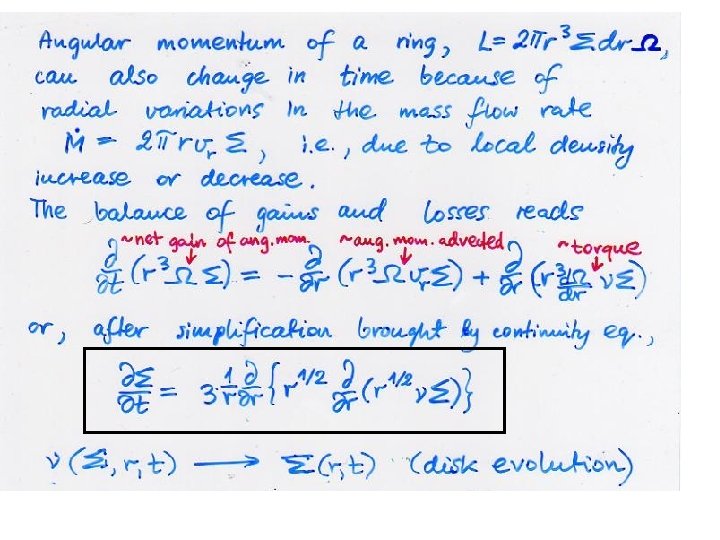 Angular momentum of a ring, L= 2πr³Σdr Ω,
can also change in time because of
radial variations in the mass flow rate
Ṁ = 2πrvᵣΣ, i.e., due to local density
increase or decrease.
The balance of gains and losses reads
~net gain of ang.mom. ~ang.mom.advected ~torque
∂/∂t (r³ΩΣ) = - ∂/∂r (r³ΩvᵣΣ) + ∂/∂r (r³ dΩ/dr νΣ)
or, after simplification brought by continuity eq.,
∂Σ/∂t = 3 1/r ∂/∂r {r^1/2 ∂/∂r (r^1/2 νΣ)}
ν(Σ,r,t) ⟶ Σ(r,t) (disk evolution)